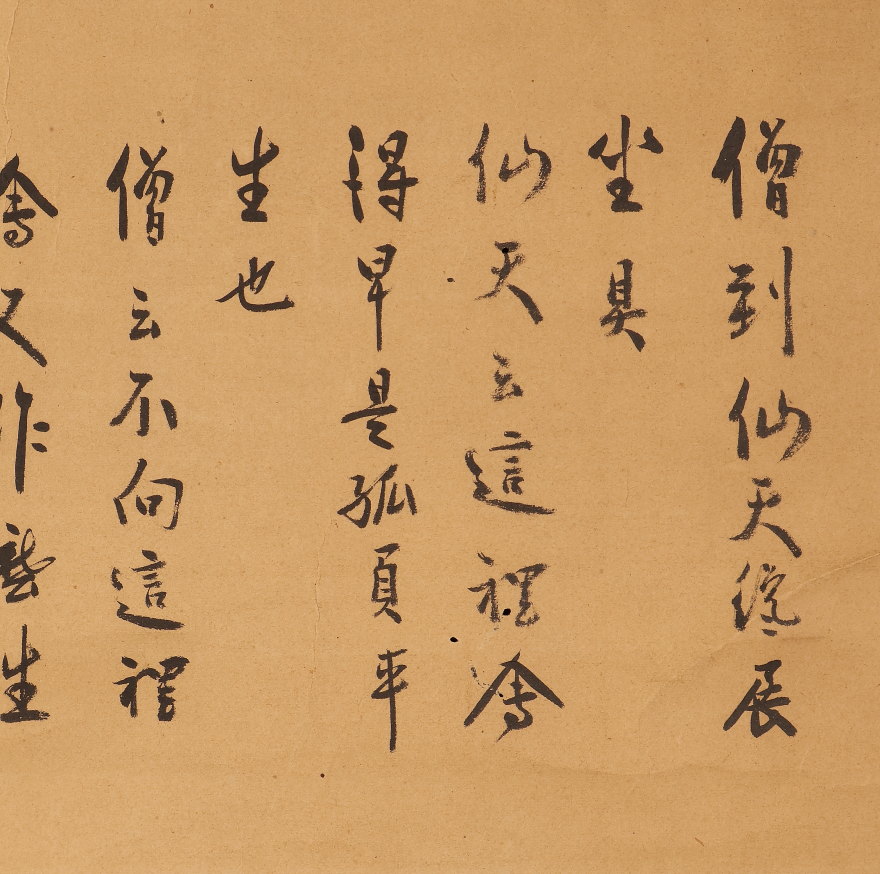 僧到仙天纔展
坐具
仙天云這裡會
得早是孤負平
生也
僧云不向這裡
會又作麼生